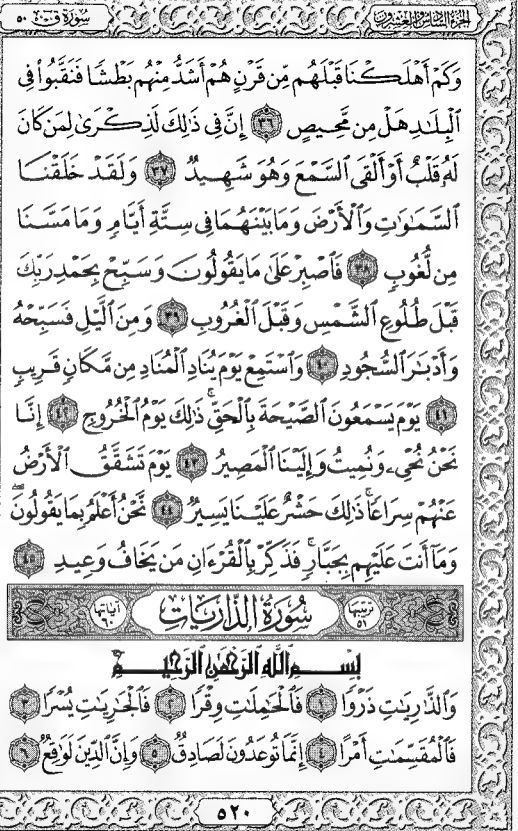 الجزء السادس والعشرون سورة ق ٥٠
وَكَمْ أَهْلَكْنَا قَبْلَهُم مِّن قَرْنٍ هُمْ أَشَدُّ مِنْهُم بَطْشًا فَنَقَّبُوا۟ فِى
ٱلْبِلَـٰدِ هَلْ مِن مَّحِيصٍ ٣٦ إِنَّ فِى ذَٰلِكَ لَذِكْرَىٰ لِمَن كَانَ
لَهُۥ قَلْبٌ أَوْ أَلْقَى ٱلسَّمْعَ وَهُوَ شَهِيدٌ ٣٧ وَلَقَدْ خَلَقْنَا
ٱلسَّمَـٰوَٰتِ وَٱلْأَرْضَ وَمَا بَيْنَهُمَا فِى سِتَّةِ أَيَّامٍ وَمَا مَسَّنَا
مِن لُّغُوبٍ ٣٨ فَٱصْبِرْ عَلَىٰ مَا يَقُولُونَ وَسَبِّحْ بِحَمْدِ رَبِّكَ
قَبْلَ طُلُوعِ ٱلشَّمْسِ وَقَبْلَ ٱلْغُرُوبِ ٣٩ وَمِنَ ٱلَّيْلِ فَسَبِّحْهُ
وَأَدْبَـٰرَ ٱلسُّجُودِ ٤٠ وَٱسْتَمِعْ يَوْمَ يُنَادِ ٱلْمُنَادِ مِن مَّكَانٍ قَرِيبٍ
٤١ يَوْمَ يَسْمَعُونَ ٱلصَّيْحَةَ بِٱلْحَقِّ ۚ ذَٰلِكَ يَوْمُ ٱلْخُرُوجِ ٤٢ إِنَّا
نَحْنُ نُحْىِۦ وَنُمِيتُ وَإِلَيْنَا ٱلْمَصِيرُ ٤٣ يَوْمَ تَشَقَّقُ ٱلْأَرْضُ
عَنْهُمْ سِرَاعًا ۚ ذَٰلِكَ حَشْرٌ عَلَيْنَا يَسِيرٌ ٤٤ نَّحْنُ أَعْلَمُ بِمَا يَقُولُونَ ۖ
وَمَآ أَنتَ عَلَيْهِم بِجَبَّارٍ ۖ فَذَكِّرْ بِٱلْقُرْءَانِ مَن يَخَافُ وَعِيدِ ٤٥
ترتيبها ٥١ سُورَةُ الذَّارِيَات آياتها ٦٠
بِسْمِ ٱللَّهِ ٱلرَّحْمَـٰنِ ٱلرَّحِيمِ
وَٱلذَّٰرِيَـٰتِ ذَرْوًا ١ فَٱلْحَـٰمِلَـٰتِ وِقْرًا ٢ فَٱلْجَـٰرِيَـٰتِ يُسْرًا ٣
فَٱلْمُقَسِّمَـٰتِ أَمْرًا ٤ إِنَّمَا تُوعَدُونَ لَصَادِقٌ ٥ وَإِنَّ ٱلدِّينَ لَوَٰقِعٌ ٦
٥٢٠